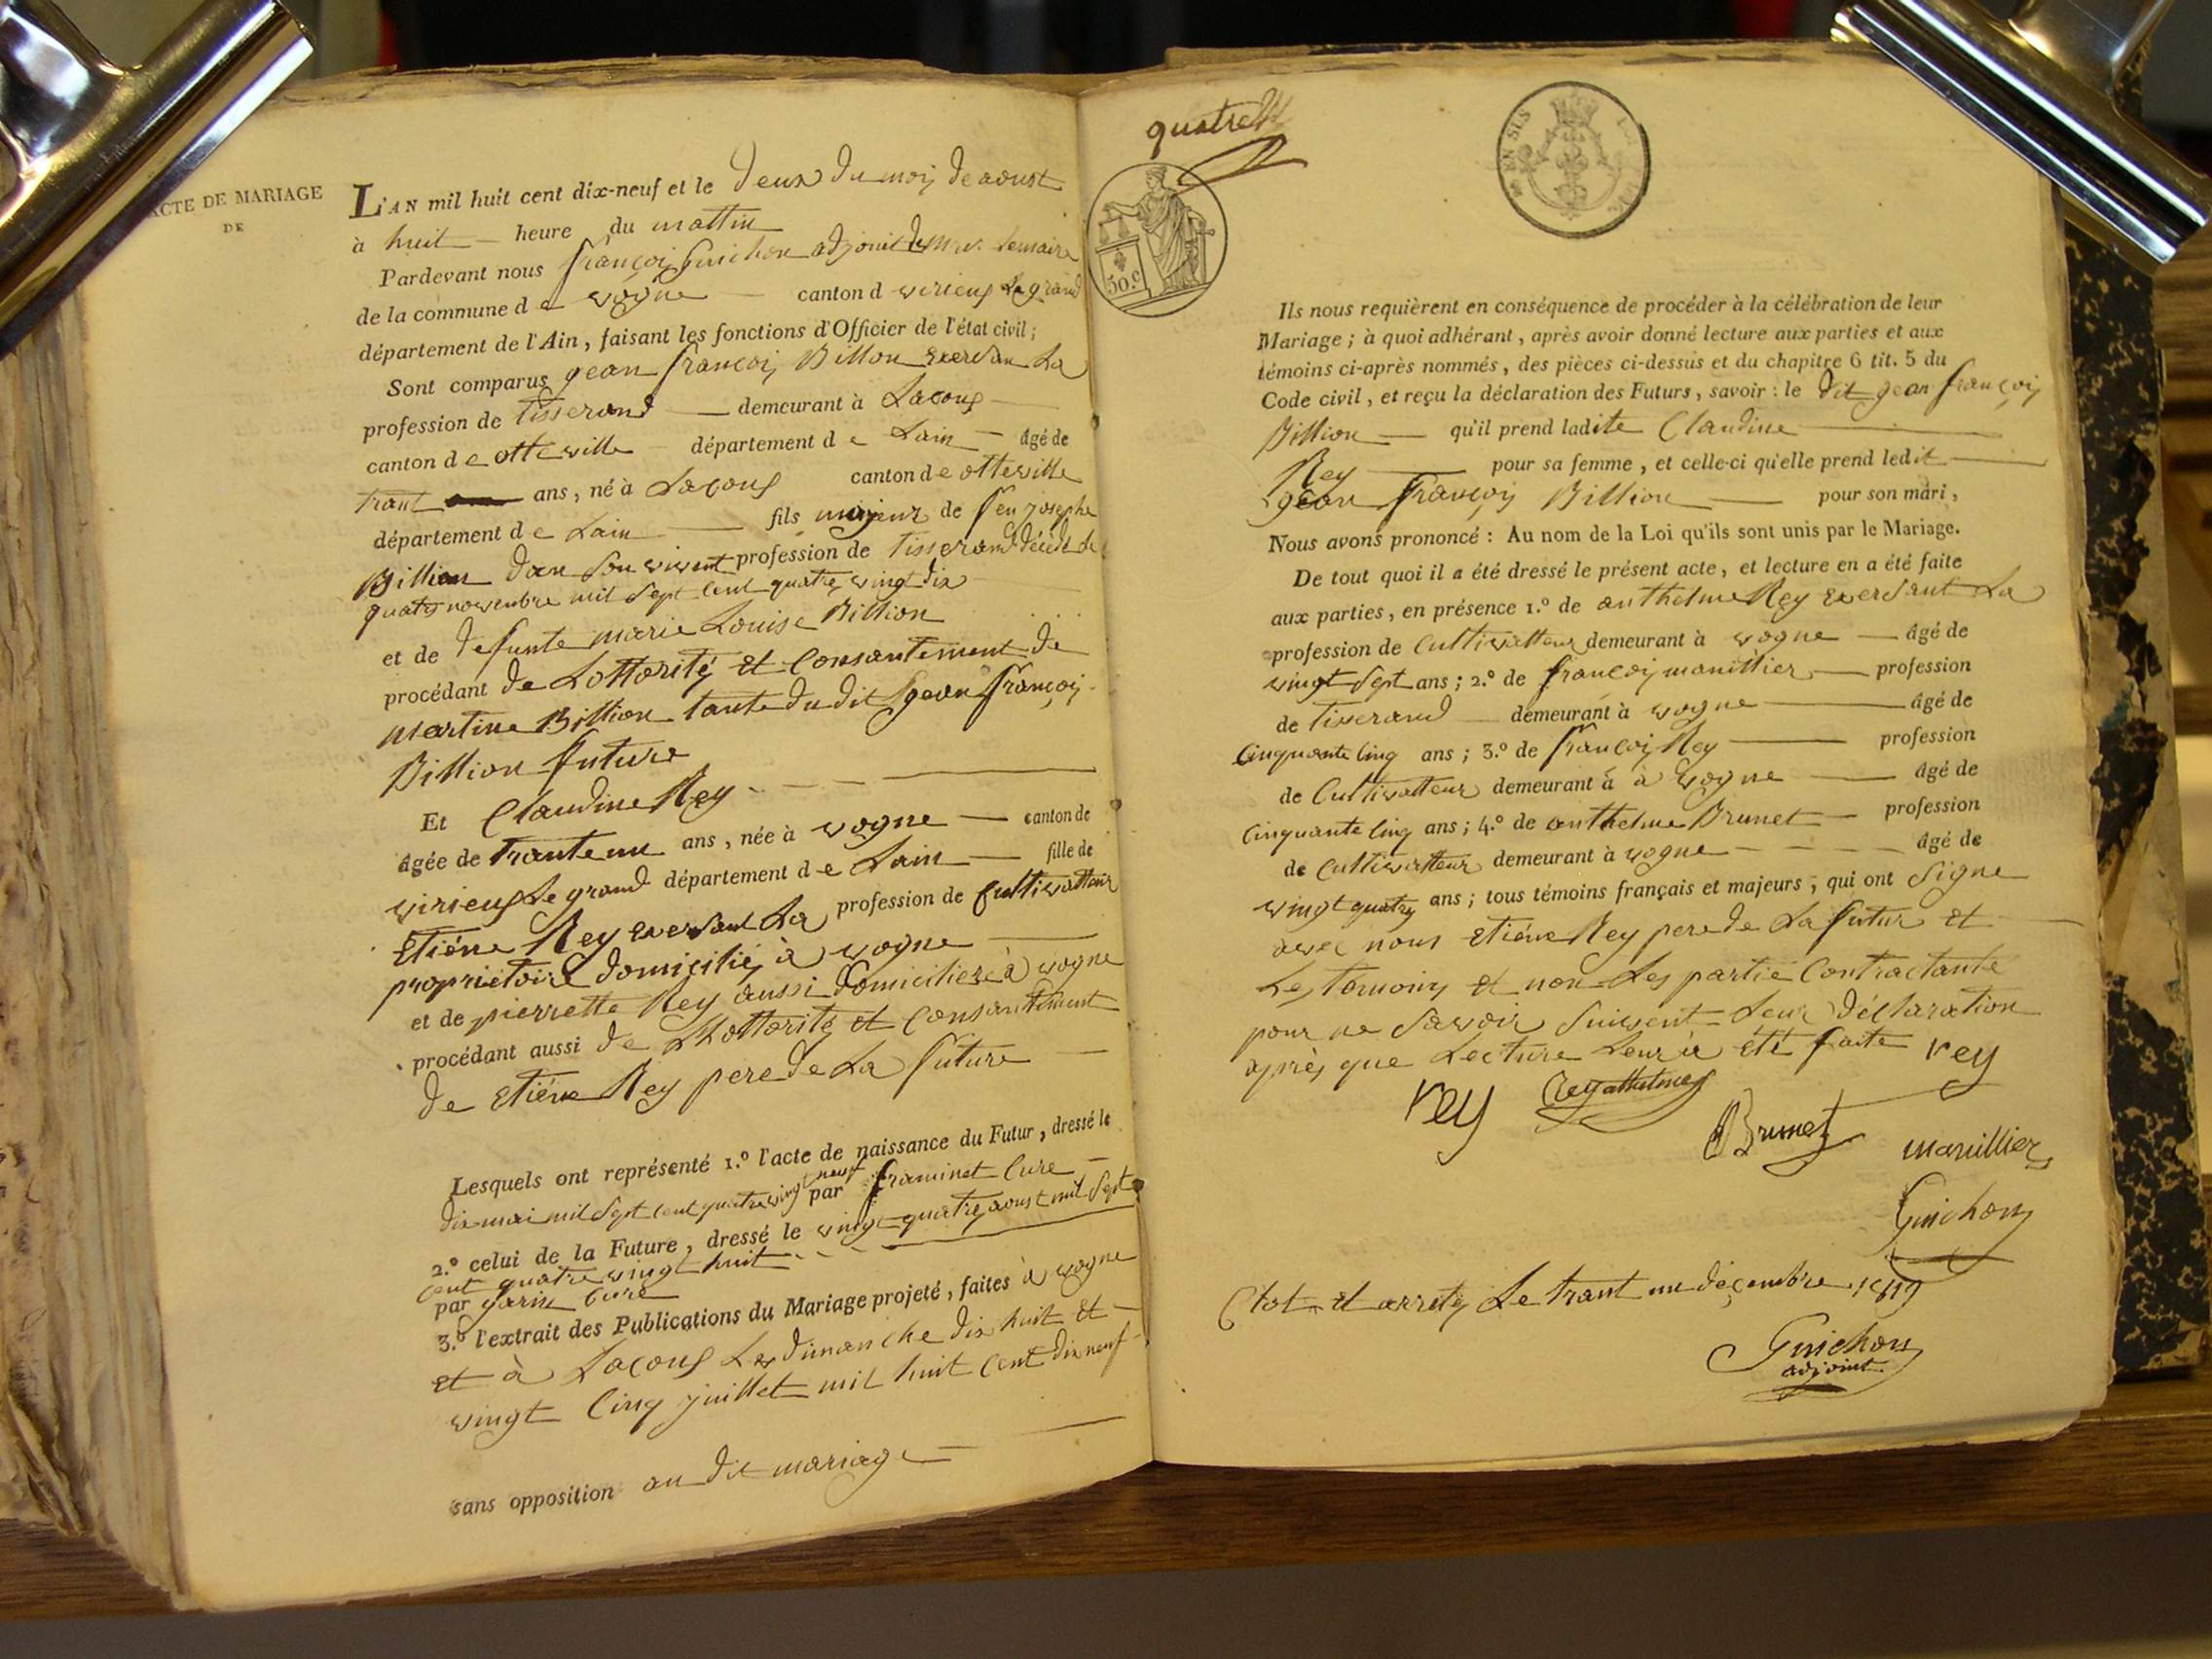 ACTE DE MARIAGE
DE
L'AN mil huit cent dix-neuf et le deux du moy de aoust
à huit heure du mattin
Pardevant nous françoy Guichon adjoint de mr. le maire
de la commune d e vogne canton d virieux Le grand
département de l'Ain, faisant les fonctions d'Officier de l'état civil;
Sont comparus gean françoy Billion exersan La
profession de Tisserand demeurant à Lacoux
canton d e otteville département d e Lain âgé de
trant ans, né à Lacoux canton de otteville
département d e Lain fils majeur de feu josephe
Billion dan son vivent profession de Tisserand décédé le
quatre novembre mil sept cent quatre vingt dix
et de defunte marie Louise Billion
procédant de Lottorité et Consantement de
martine Billion tante du dit gean françoy
Billion future
Et Claudine Rey
âgée de trante un ans, née à vogne canton de
virieux Le grand département d e Lain fille de
Etiéne Rey exersant La profession de Cultivatteur
proprietoire domicilié à vogne
et de pierrette Rey aussi domiciliere à vogne
procédant aussi de Lhottorité et Consantement
de Etiéne Rey pere de La future
Lesquels ont représenté 1.º l'acte de naissance du Futur, dressé le
dix mai mil sept cent quatre vingt neuf par framinet Cure
2.º celui de la Future, dressé le vingt quatre aoust mil sept
cent quatre vingt huit
par garin Cure
3.º l'extrait des Publications du Mariage projeté, faites à vogne
et à Lacoux Les dimanche dix huit et
vingt Cinq juillet mil huit Cent dix neuf
sans opposition au dit mariage
quatre
50.c
Ils nous requièrent en conséquence de procéder à la célébration de leur
Mariage; à quoi adhérant, après avoir donné lecture aux parties et aux
témoins ci-après nommés, des pièces ci-dessus et du chapitre 6 tit. 5 du
Code civil, et reçu la déclaration des Futurs, savoir: le dit gean françoy
Billion qu'il prend ladite Claudine
Rey pour sa femme, et celle-ci qu'elle prend ledit
gean françoy Billion pour son mari,
Nous avons prononcé: Au nom de la Loi qu'ils sont unis par le Mariage.
De tout quoi il a été dressé le présent acte, et lecture en a été faite
aux parties, en présence 1.º de anthelme Rey exersant La
profession de Cultivatteur demeurant à vogne âgé de
vingt sept ans; 2.º de françoy manillier profession
de Tisserand demeurant à vogne âgé de
Cinquante Cinq ans; 3.º de françoy Rey profession
de Cultivatteur demeurant à à vogne âgé de
Cinquante Cinq ans; 4.º de anthelme Brunet profession
de Cultivatteur demeurant à vogne âgé de
vingt quatre ans; tous témoins français et majeurs, qui ont Signe
avec nous Etiéne Rey pere de La futur et
Les temoins et non Les partie Contractante
pour ne savoir suivent Leur déclaration
après que Lecture Leur à été faite rey
rey Rey athelme
Brunet manillier
Guichon
Clot et arrete Le trant un décembre 1819
Guichon
adjoint.